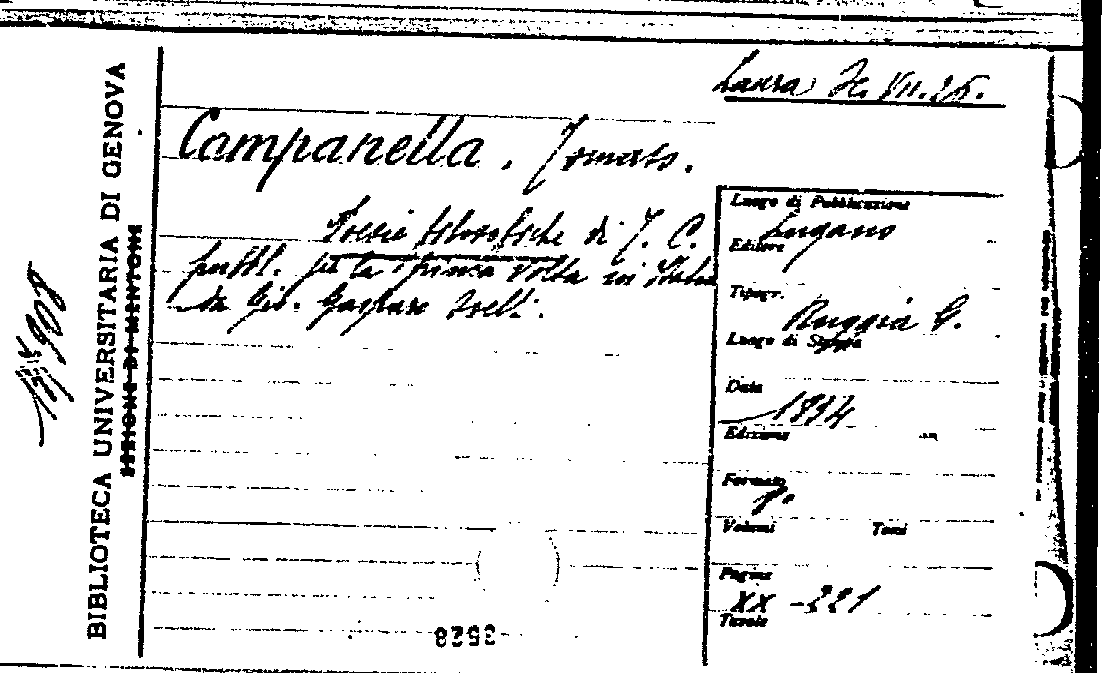 Laura
VII.25.
Campanella. Tomaso.
Poesie filosofiche di T. C.
pubbl. per la prima volta in Italia
da Gio. Gaspare Orelli.
Luogo di Pubblicazione
Lugano
Editore
Tipogr.
Ruggia G.
Luogo di Stampa
Data
1834
Edizione
Formato
8°
Volumi Tomi
Pagine
XX - 221
Tavole
BIBLIOTECA UNIVERSITARIA DI GENOVA
SEZIONE DI MENTONE
3528